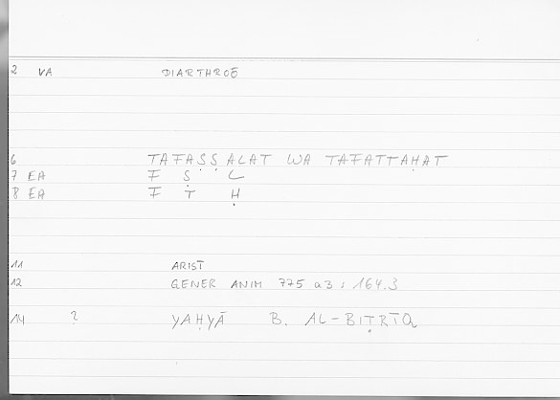 2 VA DIARTHROĒ
6 TAFAṢṢALAT WA TAFATTAḤAT
7 EA F Ṣ L
8 EA F T Ḥ
11 ARIST
12 GENER ANIM 775 a3 : 164.3
14 ? YAḤYĀ B. AL-BIṬRĪQ